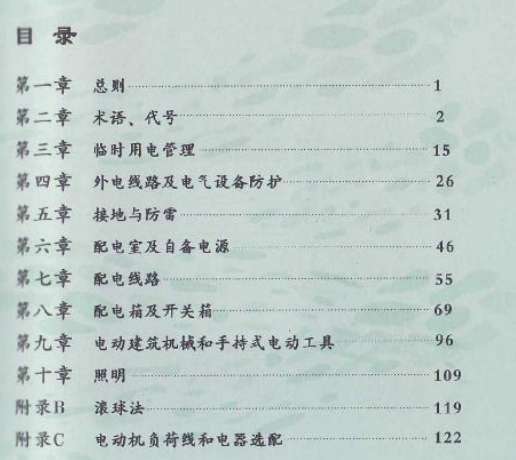 目 录
第一章 总则 1
第二章 术语、代号 2
第三章 临时用电管理 15
第四章 外电线路及电气设备防护 26
第五章 接地与防雷 31
第六章 配电室及自备电源 46
第七章 配电线路 55
第八章 配电箱及开关箱 69
第九章 电动建筑机械和手持式电动工具 96
第十章 照明 109
附录B 滚球法 119
附录C 电动机负荷线和电器选配 122